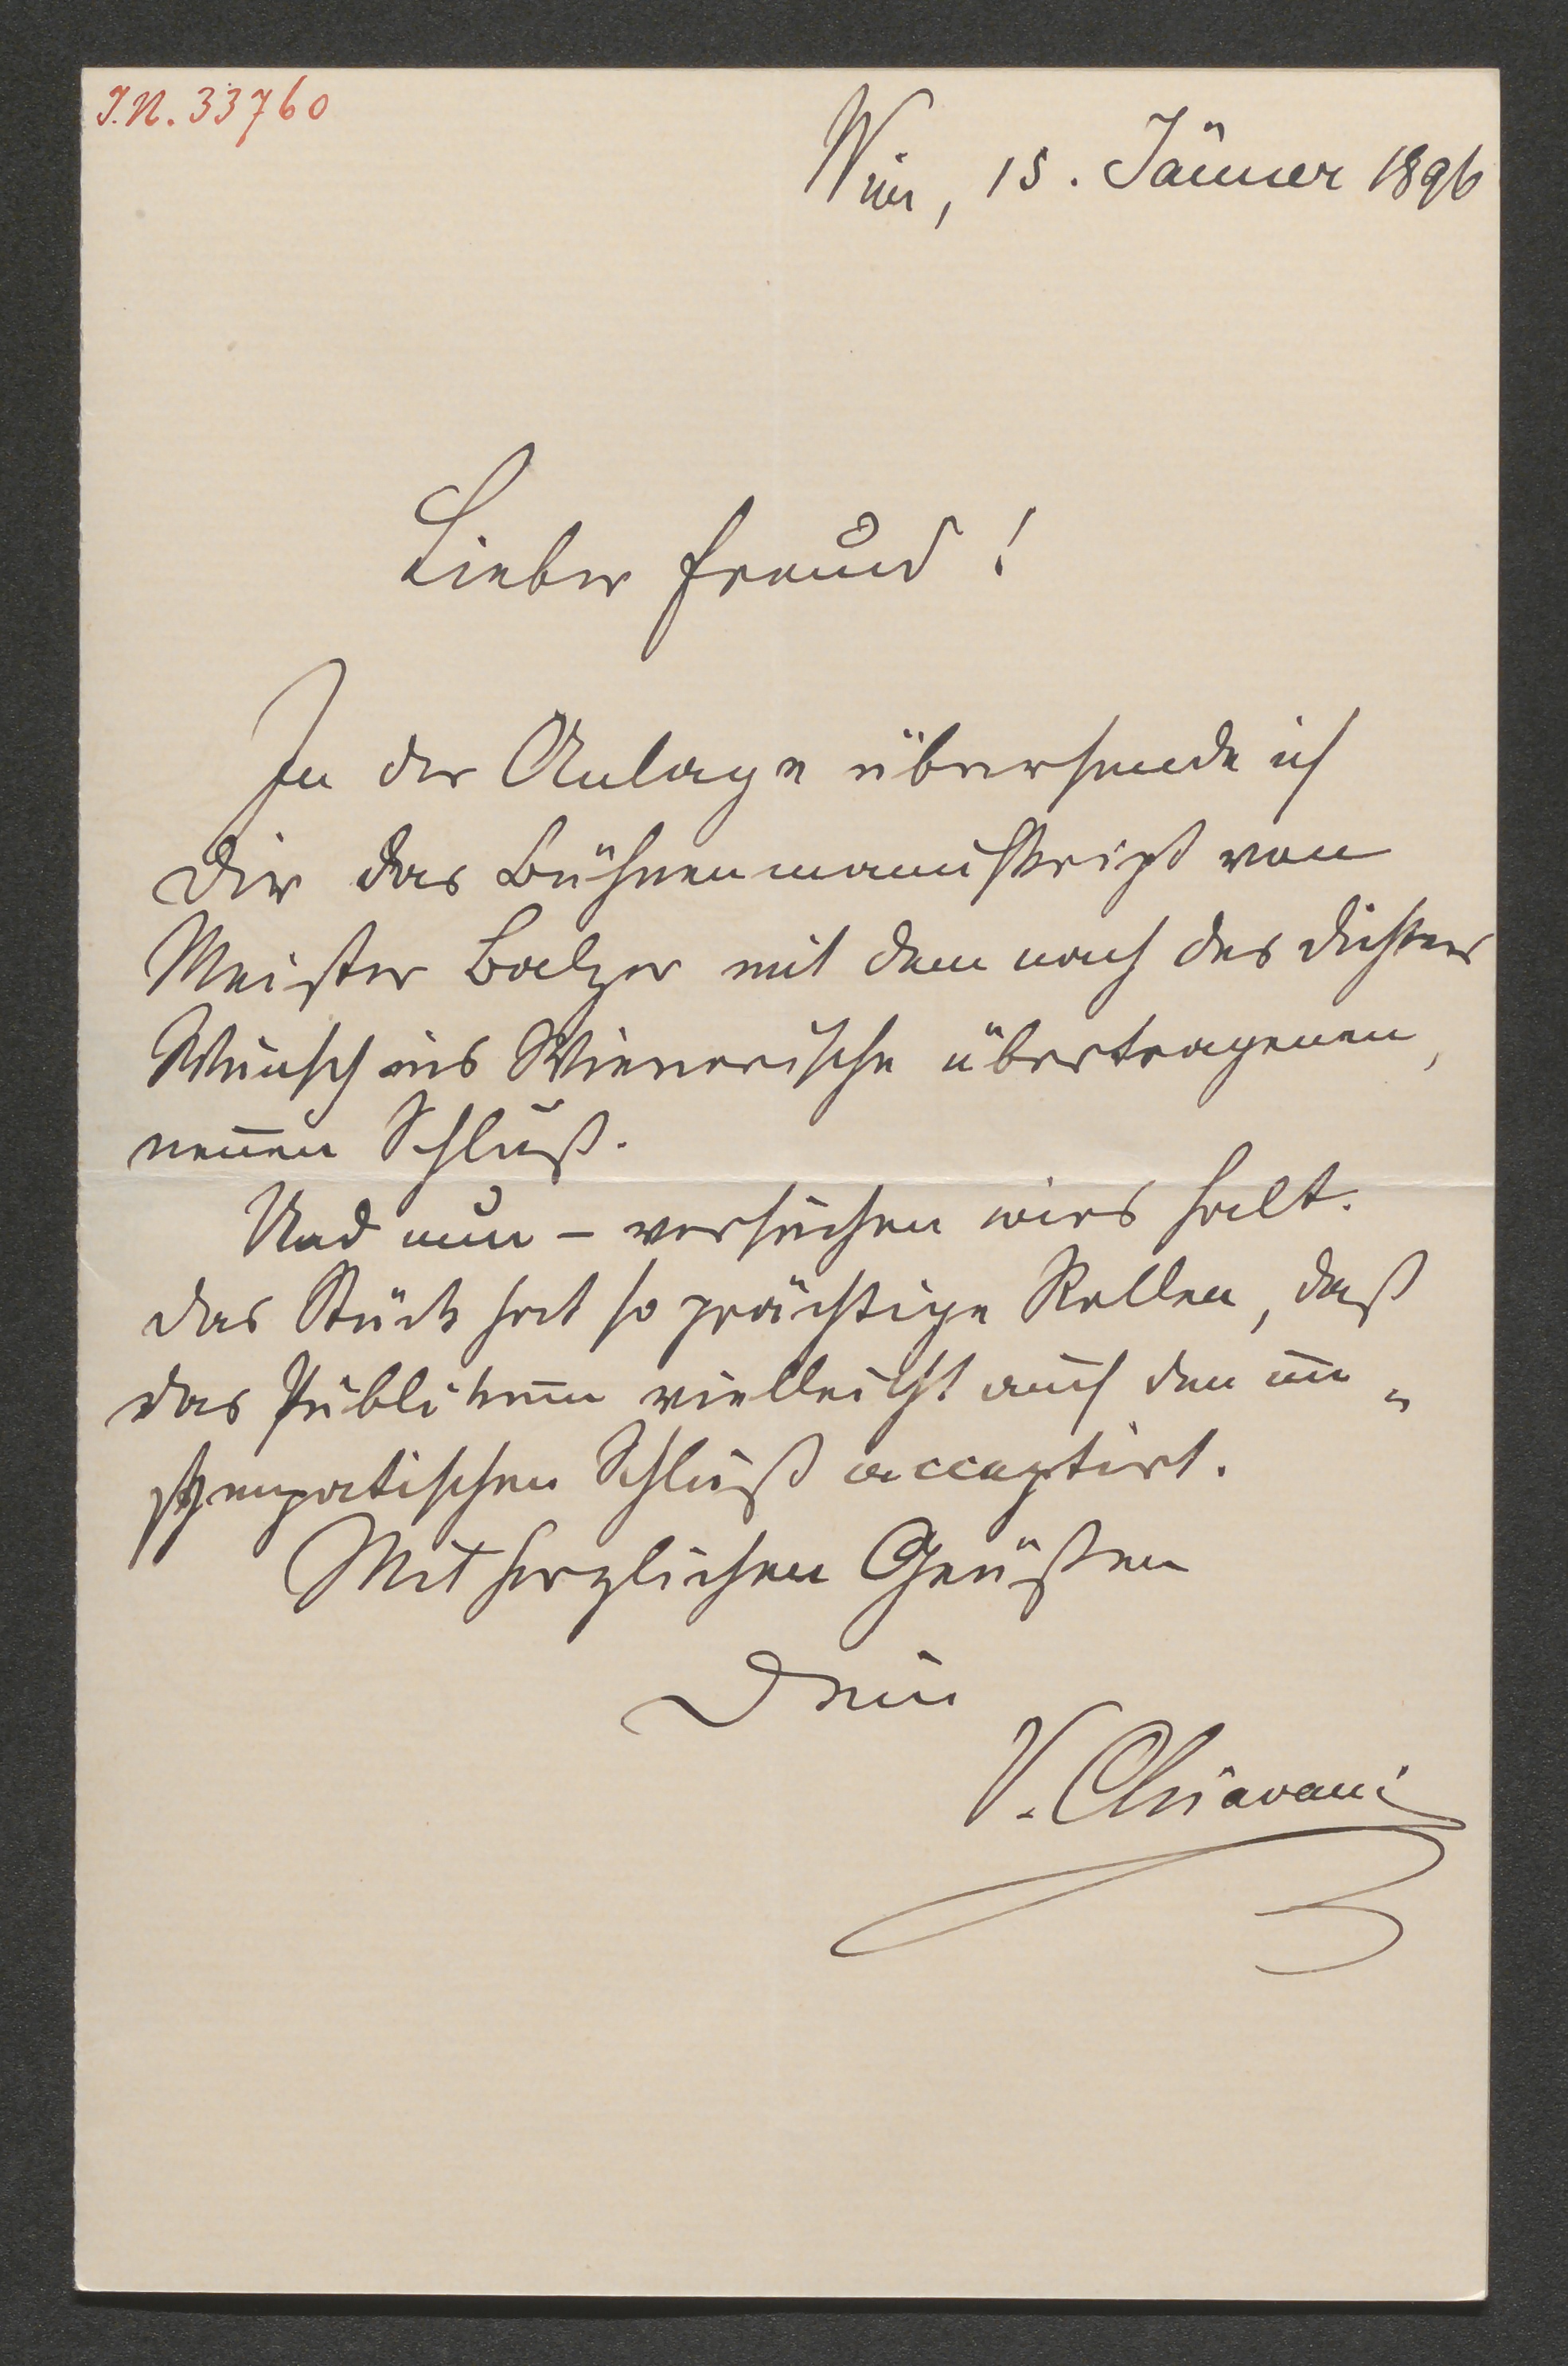 J.N. 33760
Wien, 15. Jänner 1896
Lieber Freund!
In der Anlage übersende ich
Dir das Bühnenmanuskript von
Meister Balzer mit dem nach des Dichters
Wunsch ins Wienerische übertragenen,
neuen Schluß.
Und nun – versuchen wirs halt.
Das Stück hat so prächtige Rollen, daß
das Publikum vielleicht auch den un„
sympatischen Schluß acceptirt.
Mit herzlichen Grüßen
Dein
V. Chiavacci